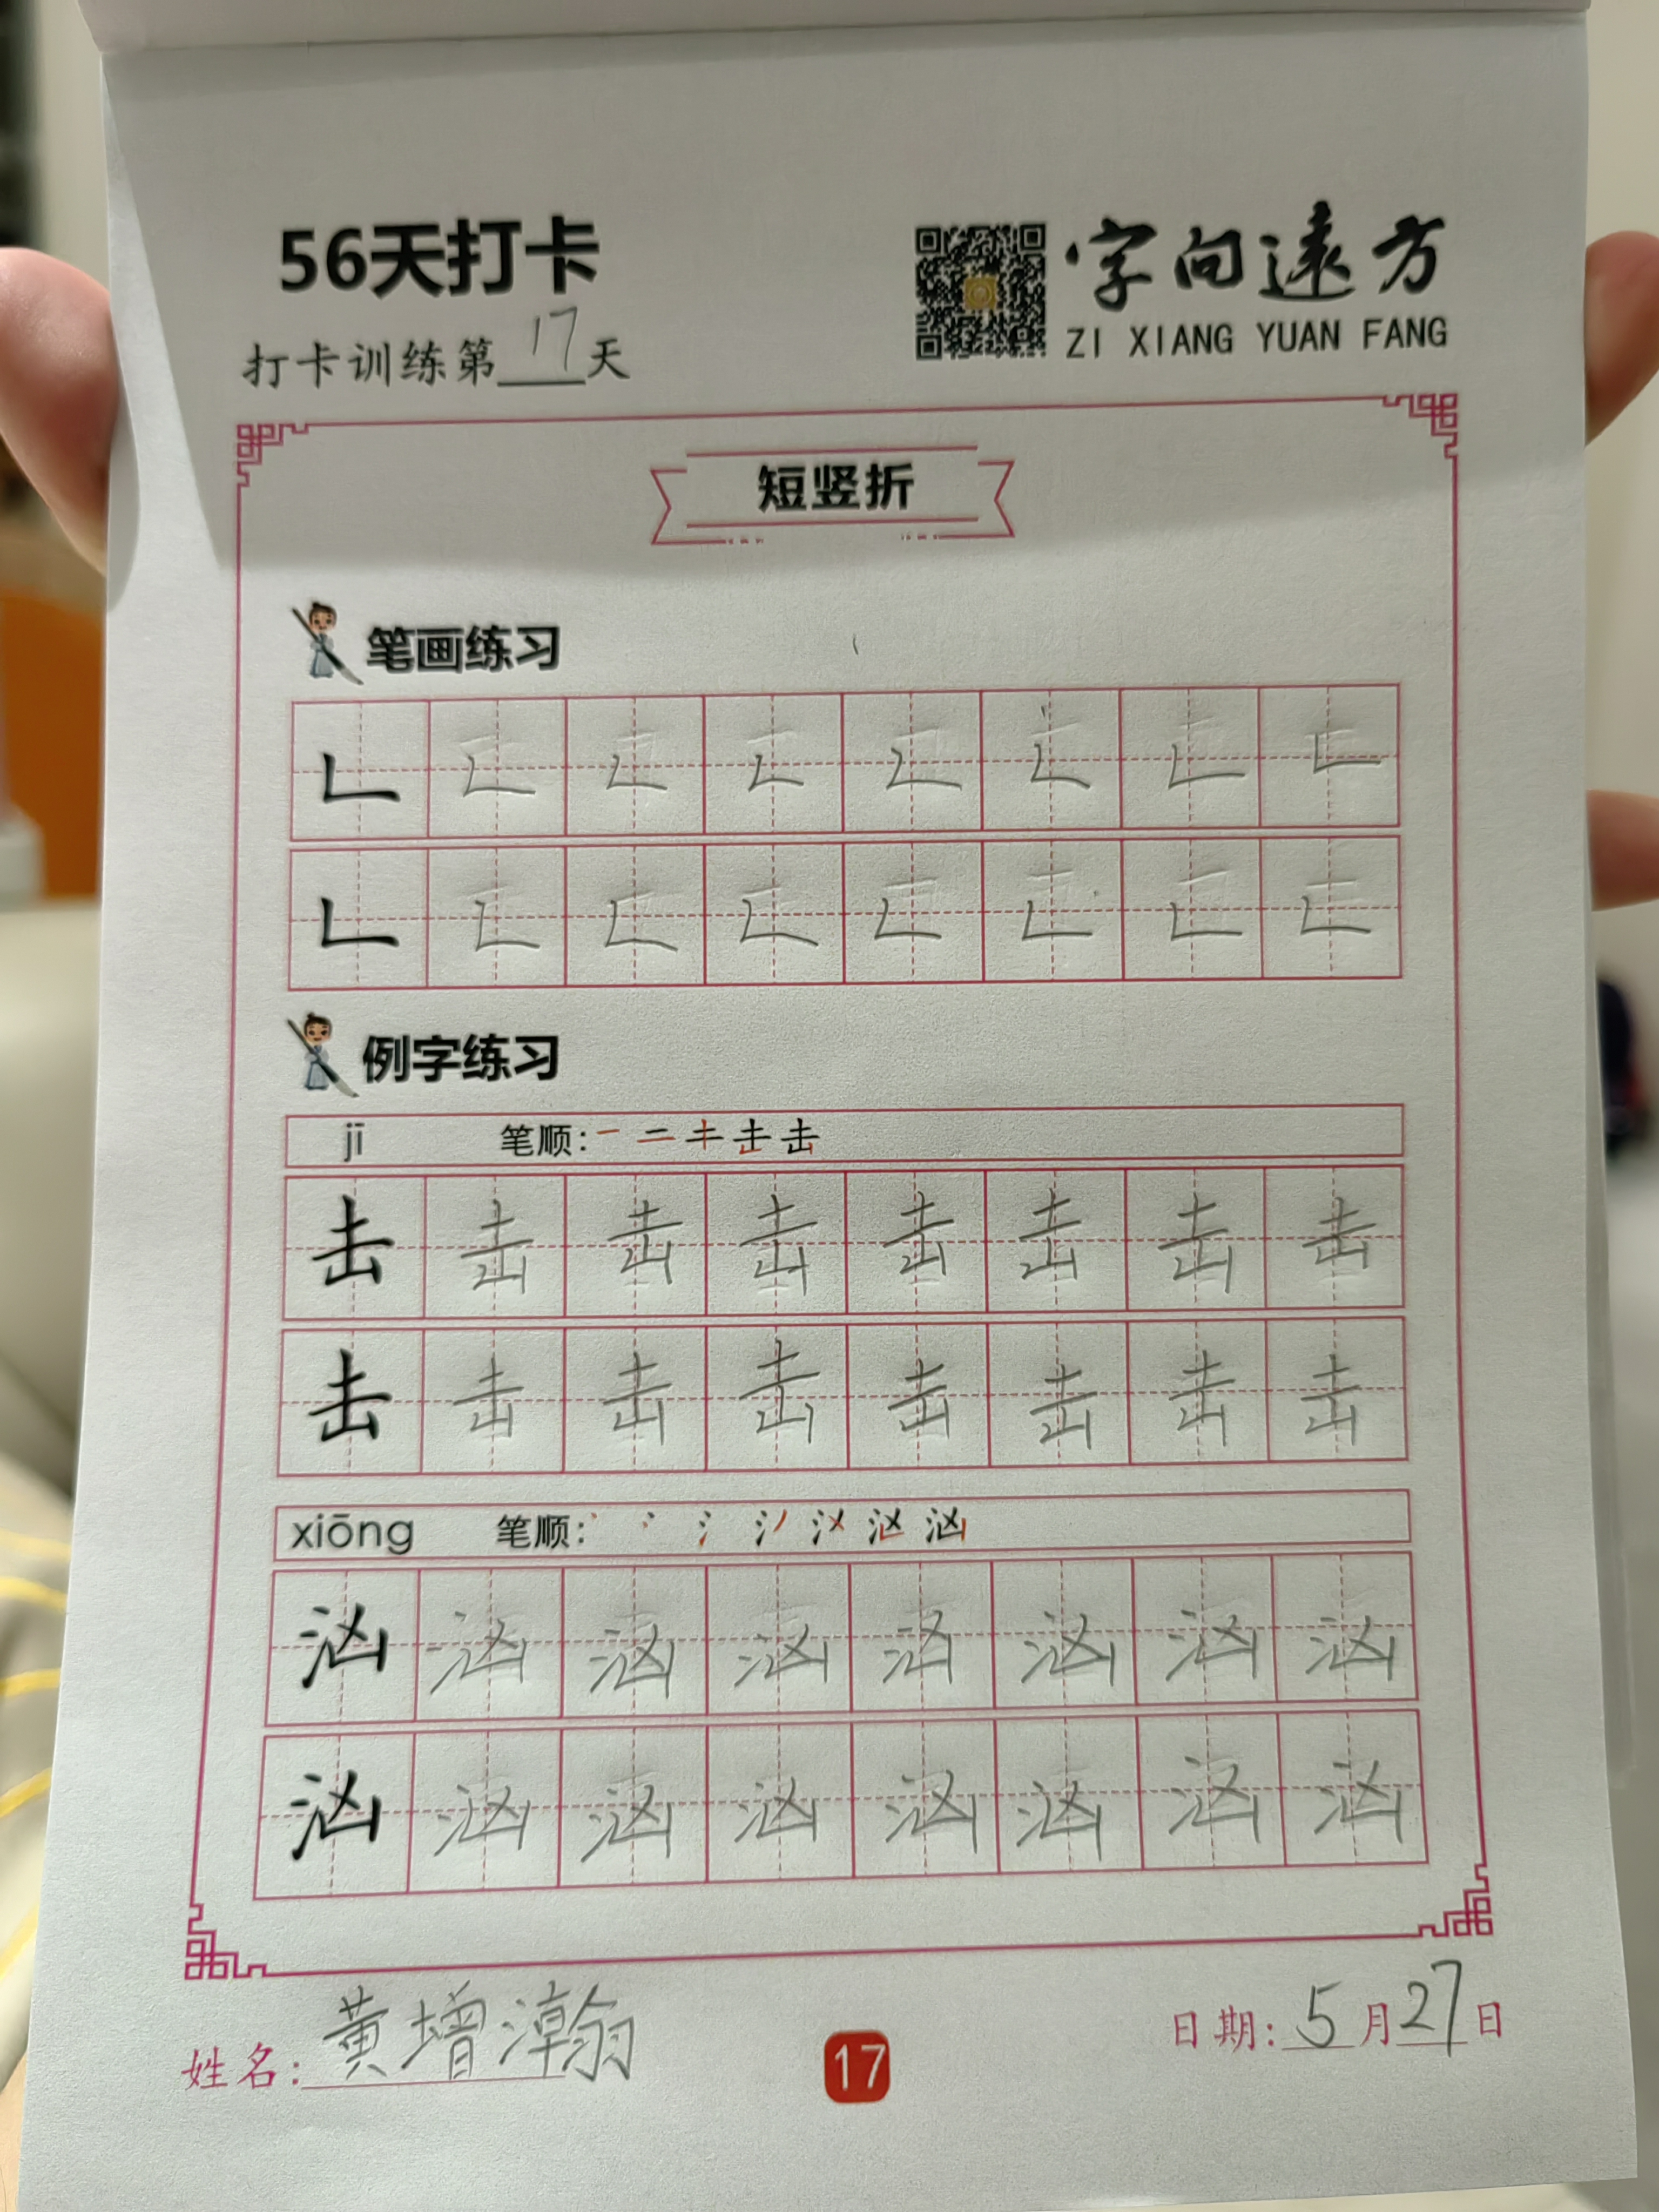 56天打卡
字向遠方
ZI XIANG YUAN FANG
打卡训练第17天
短竖折
笔画练习
例字练习
jī 笔顺:
击 击 击 击 击 击 击 击
击 击 击 击 击 击 击 击
xiōng 笔顺:
汹 汹 汹 汹 汹 汹 汹 汹
汹 汹 汹 汹 汹 汹 汹 汹
姓名: 黄增瀚
17
日期: 5月27日